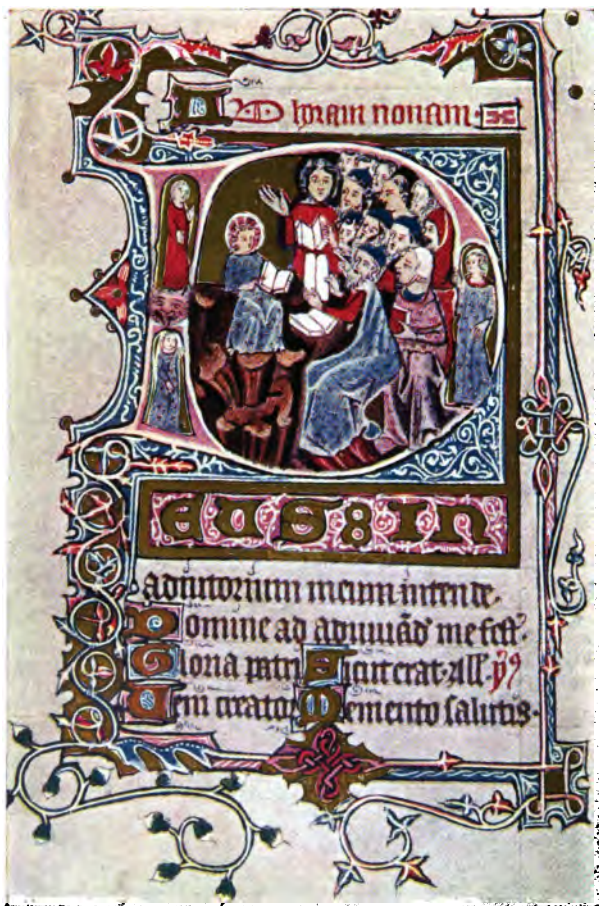 AD horam nonam.
DEUS IN
adiutorium meum intende.
Domine ad adiuuād' me feſt'.
Gloria patri Sicut erat. All'. ỹ9
Veni creator Memento salutis.